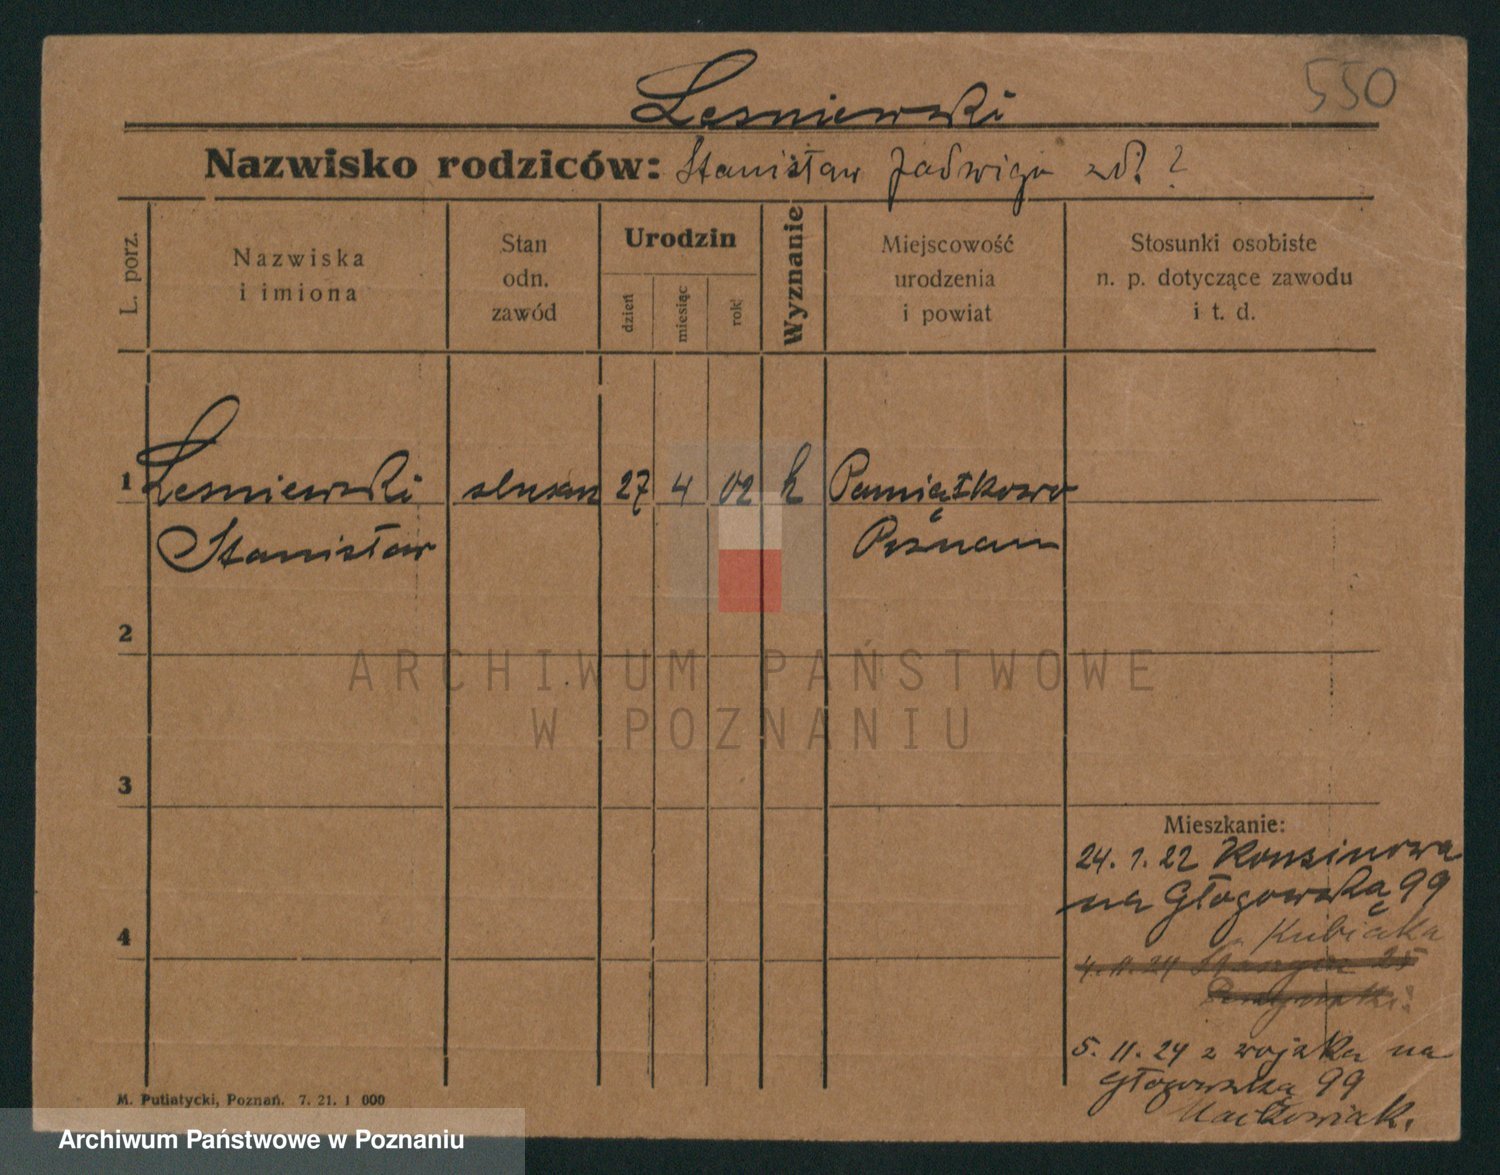 550
Leśniewski
Nazwisko rodziców: Stanisław Jadwiga zd. ?
L. porz.
Nazwiska
i imiona
Stan
odn.
zawód
Urodzin
dzień
miesiąc
rok
Wyznanie
Miejscowość
urodzenia
i powiat
Stosunki osobiste
n. p. dotyczące zawodu
i t. d.
1 Leśniewski ślusarz 27 4 02 k Pamiątkowo
Stanisław Poznań
2
ARCHIWUM PAŃSTWOWE
W POZNANIU
3
Mieszkanie:
24. 1. 22
na Głogowską 99
4
Kubiaka
4. 11. 24 25
5. 11. 24 z wojska na
Głogowską 99
Maćkowiak.
M. Putiatycki, Poznań. 7. 21. 1 000
Archiwum Państwowe w Poznaniu